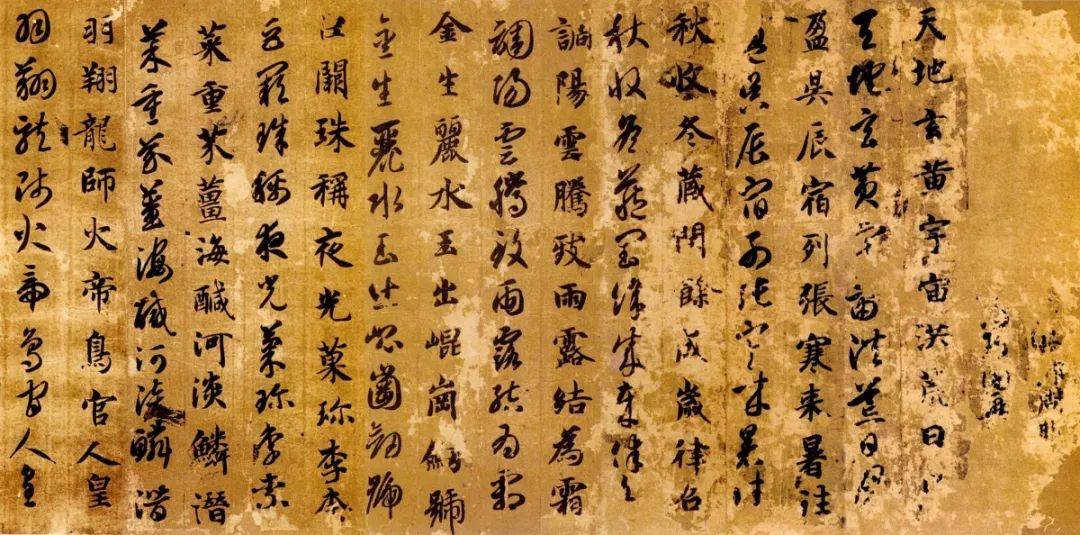 天地玄黄宇宙洪荒日
天地玄黄宇宙洪荒日月
盈昃辰宿列張寒来暑往
盈昃辰宿列張寒来暑往
秋收冬藏閏餘成歲律召
秋收冬藏閏餘成歲律召
調陽雲騰致雨露結為霜
調陽雲騰致雨露結為霜
金生麗水玉出崐崗劒號
金生麗水玉出崐崗劒號
巨闕珠稱夜光菓珎李柰
巨闕珠稱夜光菓珎李柰
菜重芥薑海醎河淡鱗潛
菜重芥薑海醎河淡鱗潛
羽翔龍師火帝鳥官人皇
羽翔龍師火帝鳥官人皇